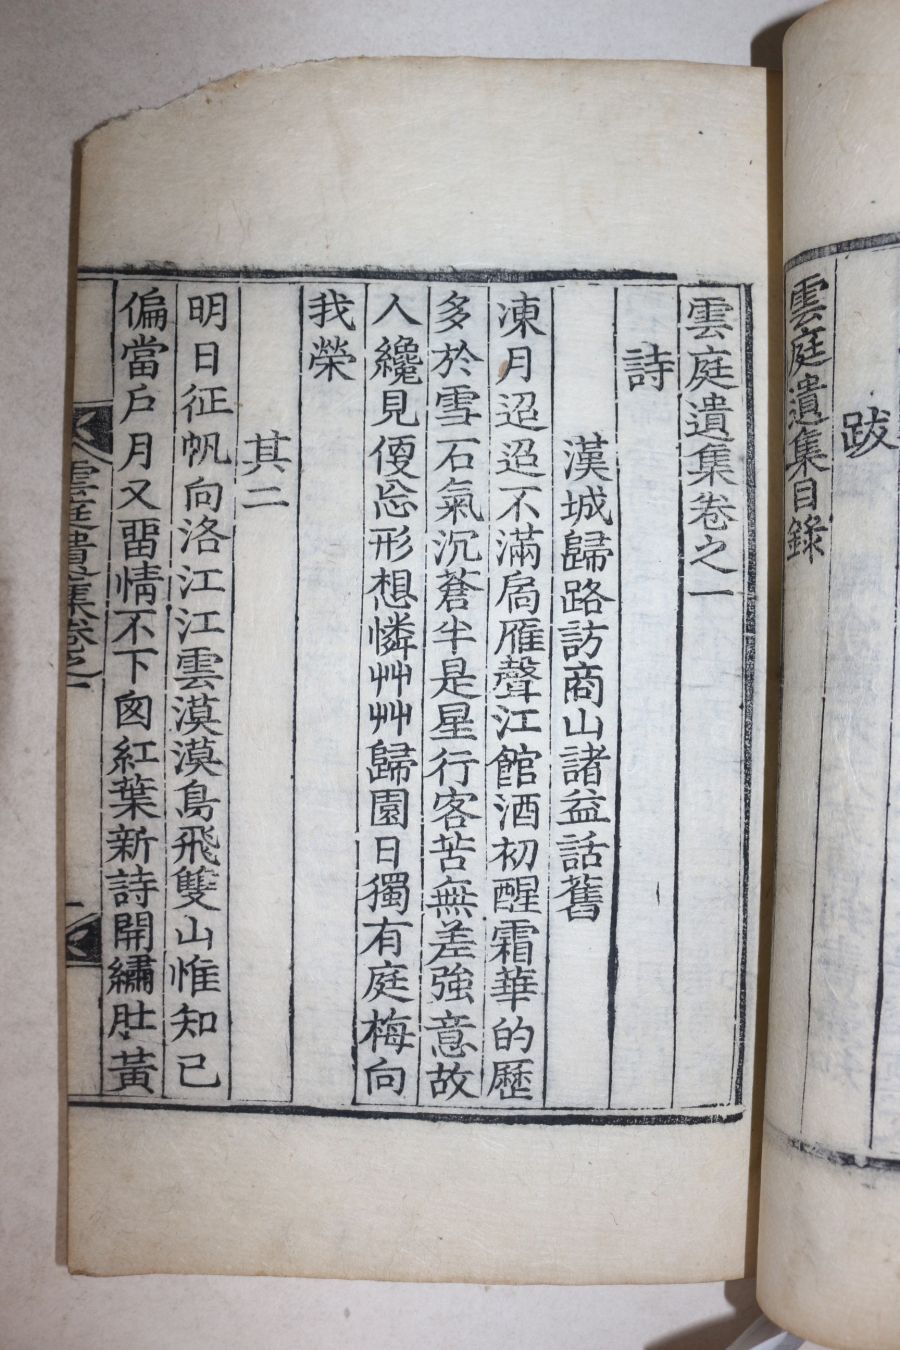 跋
雲庭遺集目錄
雲庭遺集卷之一
詩
漢城歸路訪商山諸益話舊
凍月迢迢不滿扄雁聲江館酒初醒霜華的歷
多於雪石氣沉蒼半是星行客苦無差強意故
人纔見便忩形想憐艸艸歸園日獨有庭梅向
我榮
其二
明日征帆向洛江江雲漠漠鳥飛雙山惟知已
偏當戶月又畱情不下囱紅葉新詩開繡肚黃
雲庭遺集卷之一